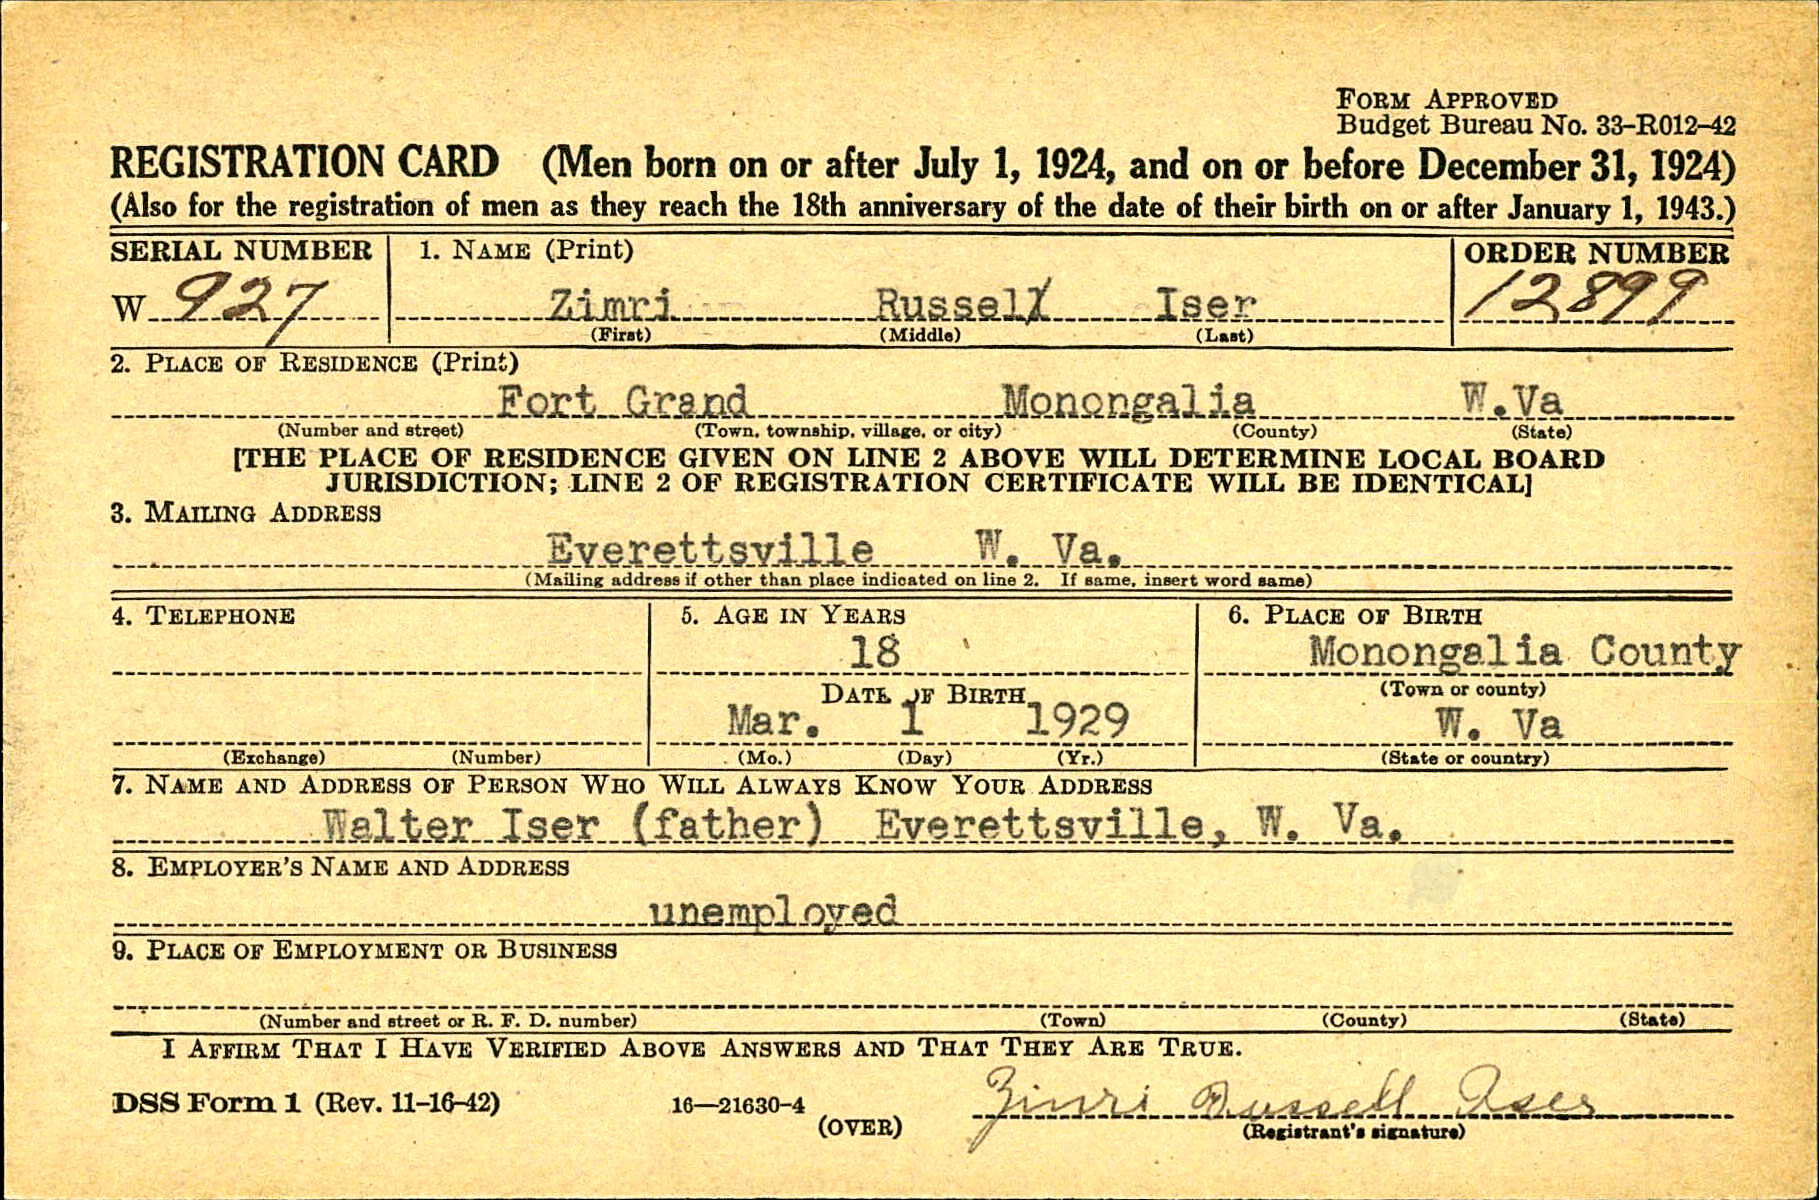 FORM APPROVED
Budget Bureau No. 33-R012-42
REGISTRATION CARD (Men born on or after July 1, 1924, and on or before December 31, 1924)
(Also for the registration of men as they reach the 18th anniversary of the date of their birth on or after January 1, 1943.)
SERIAL NUMBER 1. NAME (Print) ORDER NUMBER
W 927 Zimri Russell Iser 12899
(First) (Middle) (Last)
2. PLACE OF RESIDENCE (Print)
Fort Grand Monongalia W.Va
(Number and street) (Town, township, village, or city) (County) (State)
[THE PLACE OF RESIDENCE GIVEN ON LINE 2 ABOVE WILL DETERMINE LOCAL BOARD
JURISDICTION; LINE 2 OF REGISTRATION CERTIFICATE WILL BE IDENTICAL]
3. MAILING ADDRESS
Everettsville W. Va.
(Mailing address if other than place indicated on line 2. If same, insert word same)
4. TELEPHONE 5. AGE IN YEARS 6. PLACE OF BIRTH
18 Monongalia County
DATE OF BIRTH (Town or county)
Mar. 1 1929 W. Va
(Exchange) (Number) (Mo.) (Day) (Yr.) (State or country)
7. NAME AND ADDRESS OF PERSON WHO WILL ALWAYS KNOW YOUR ADDRESS
Walter Iser (father) Everettsville, W. Va.
8. EMPLOYER'S NAME AND ADDRESS
unemployed
9. PLACE OF EMPLOYMENT OR BUSINESS
(Number and street or R. F. D. number) (Town) (County) (State)
I AFFIRM THAT I HAVE VERIFIED ABOVE ANSWERS AND THAT THEY ARE TRUE.
DSS Form 1 (Rev. 11-16-42) 16—21630-4 Zimri Russell Iser
(OVER) (Registrant's signature)